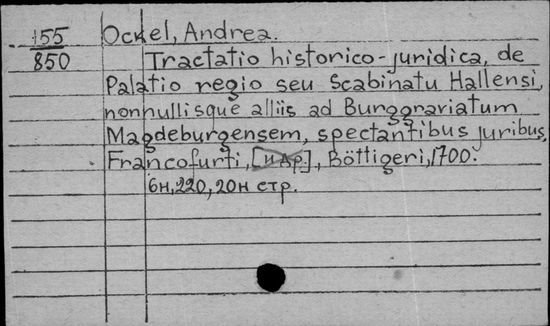 155 Ockel, Andrea.
850 Tractatio historico-juridica, de
Palatio regio seu Scabinatu Hallensi,
nonnullisque alliis ad Burggraviatum
Magdeburgensem, spectantibus juribus,
Francofurti, [и др.], Böttigeri, 1700.
6н, 220, 20н стр.